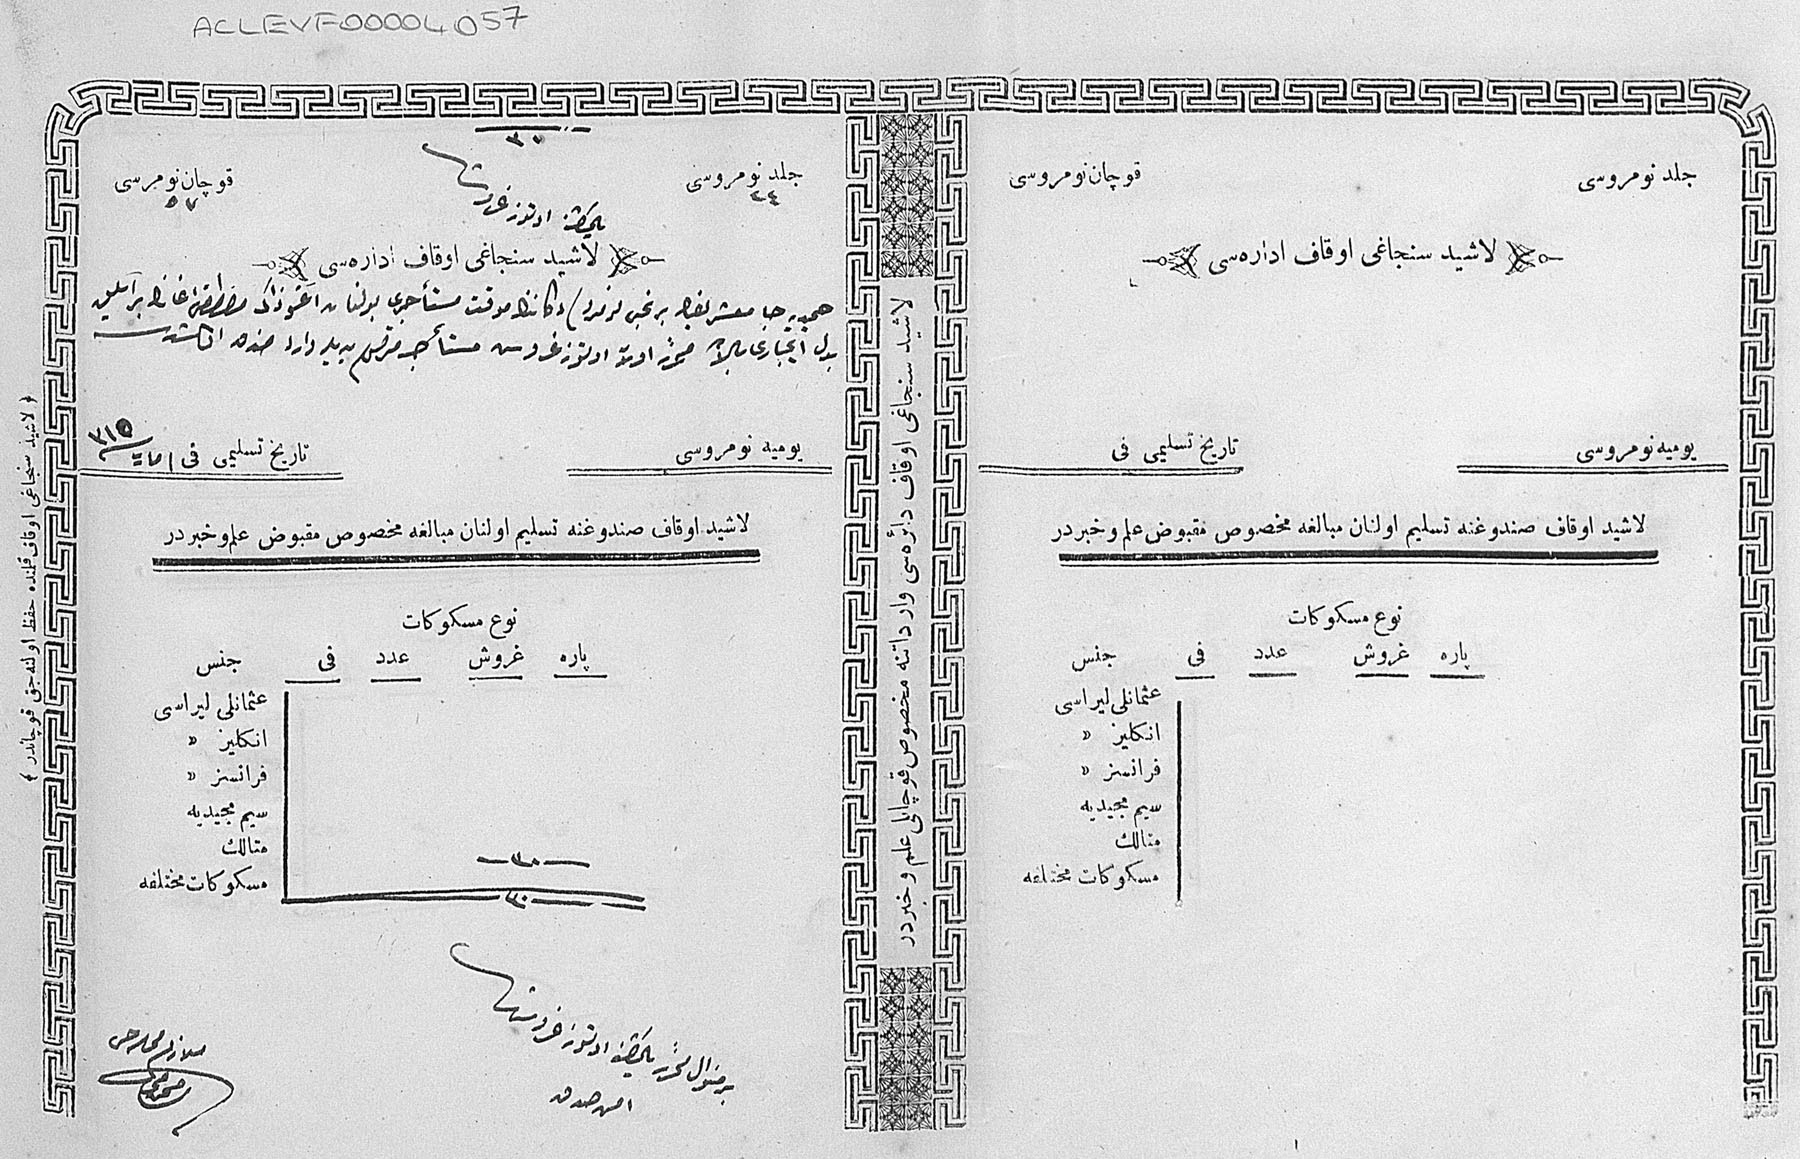 ACLEVF00004057
جلد نومروسی
قوچان نومروسی
لاشید سنجاغی اوقاف اداره‌سی
یومیه نومروسی
تاریخ تسلیمی فی
لاشید اوقاف صندوغنه تسلیم اولنان مبالغه مخصوص مقبوض علم و خبردر
نوع مسکوکات
پاره غروش عدد فی جنس
عثمانلی لیراسی
انکلیز »
فرانسز »
سیم مجیدیه
متالك
مسکوکات مختلفه
لاشید سنجاغی اوقاف دائره‌سی وارداتنه مخصوص قوچانلی علم و خبردر
٣٠
جلد نومروسی
٢٤
قوچان نومرسی
٥٧
یالکز اوتوز غروشدر
لاشید سنجاغی اوقاف اداره‌سی
بدل ایجاری اوتوز غروش
یومیه نومروسی
تاریخ تسلیمی فی ٣١٥
لاشید اوقاف صندوغنه تسلیم اولنان مبالغه مخصوص مقبوض علم و خبردر
نوع مسکوکات
پاره غروش عدد فی جنس
عثمانلی لیراسی
انکلیز »
فرانسز »
سیم مجیدیه
متالك
مسکوکات مختلفه
٣٠
٣٠
بر منوال محرر یالکز اوتوز غروشدر
امین صندوق
﴿ لاشید سنجاغی اوقاف قلمنده حفظ اولنه‌جق قوچاندر ﴾